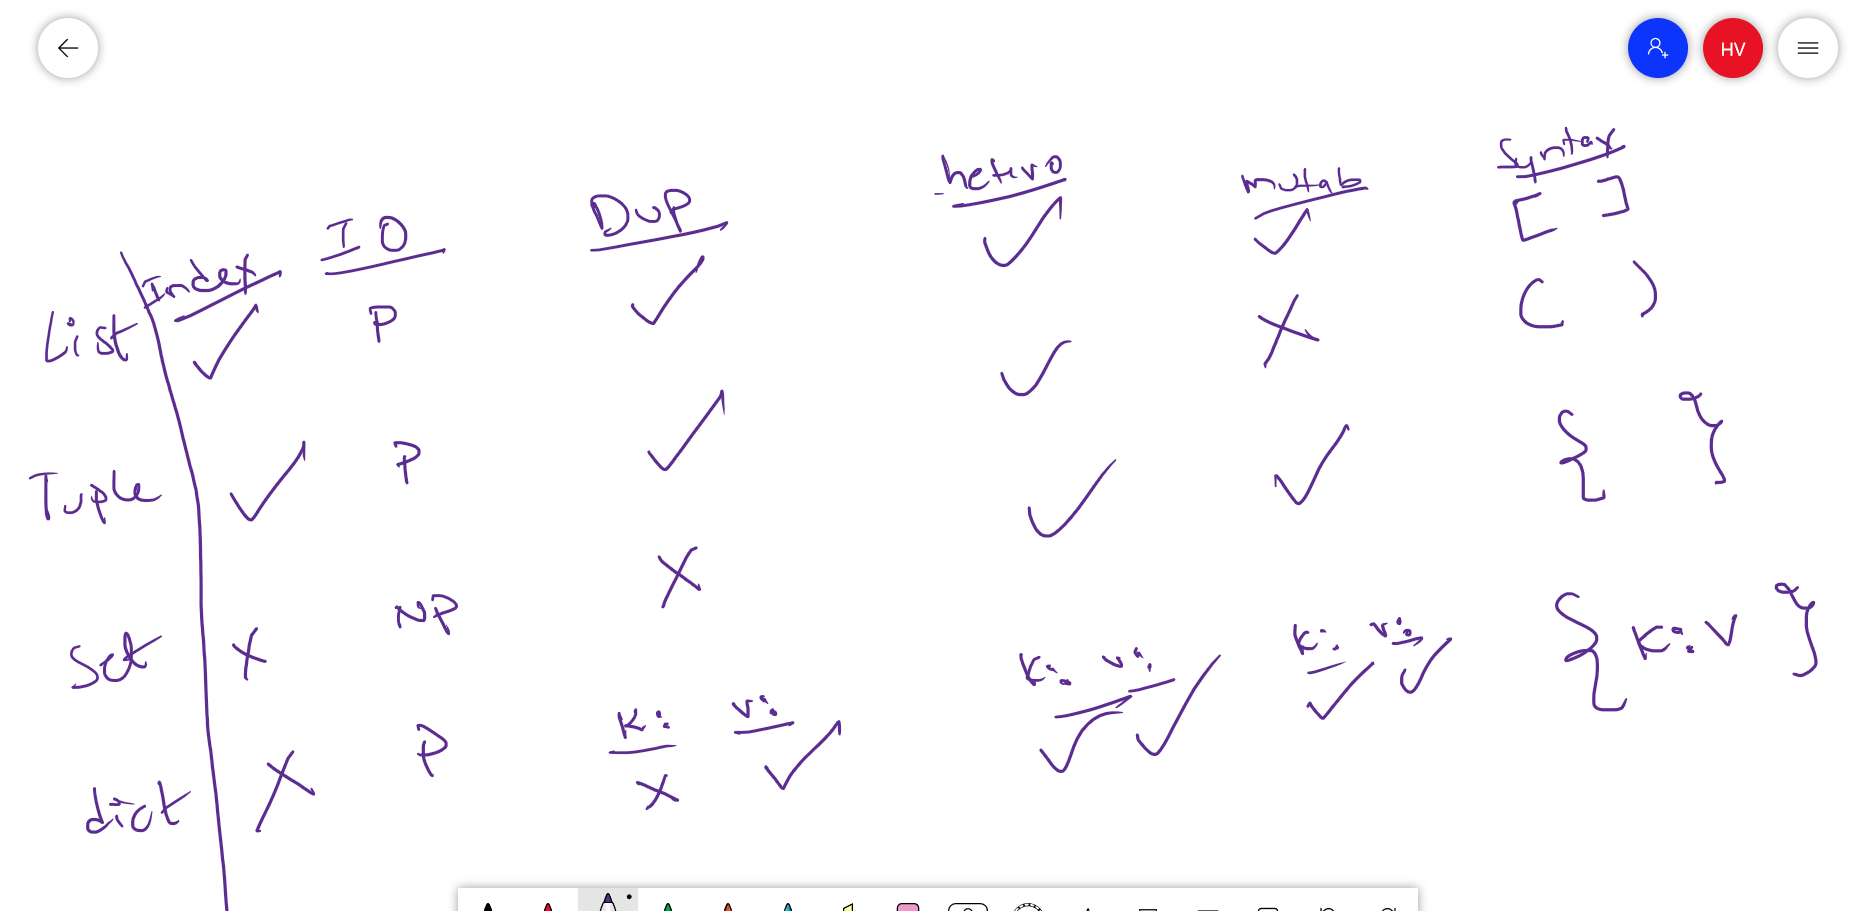 HV
Index IO Dup hetro mutab Syntax
List ✓ P ✓ ✓ ✓ [ ]
Tuple ✓ P ✓ ✓ X ( )
Set X NP X ✓ ✓ { }
dict X P K: X V: ✓ K: ✓ V: ✓ K: ✓ V: ✓ { K: V }